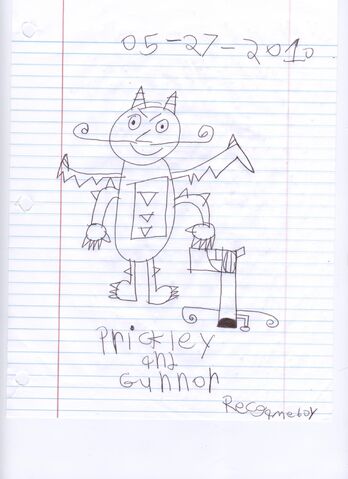 05-27-2010
Prickley
and
Gunnor
Recogameboy